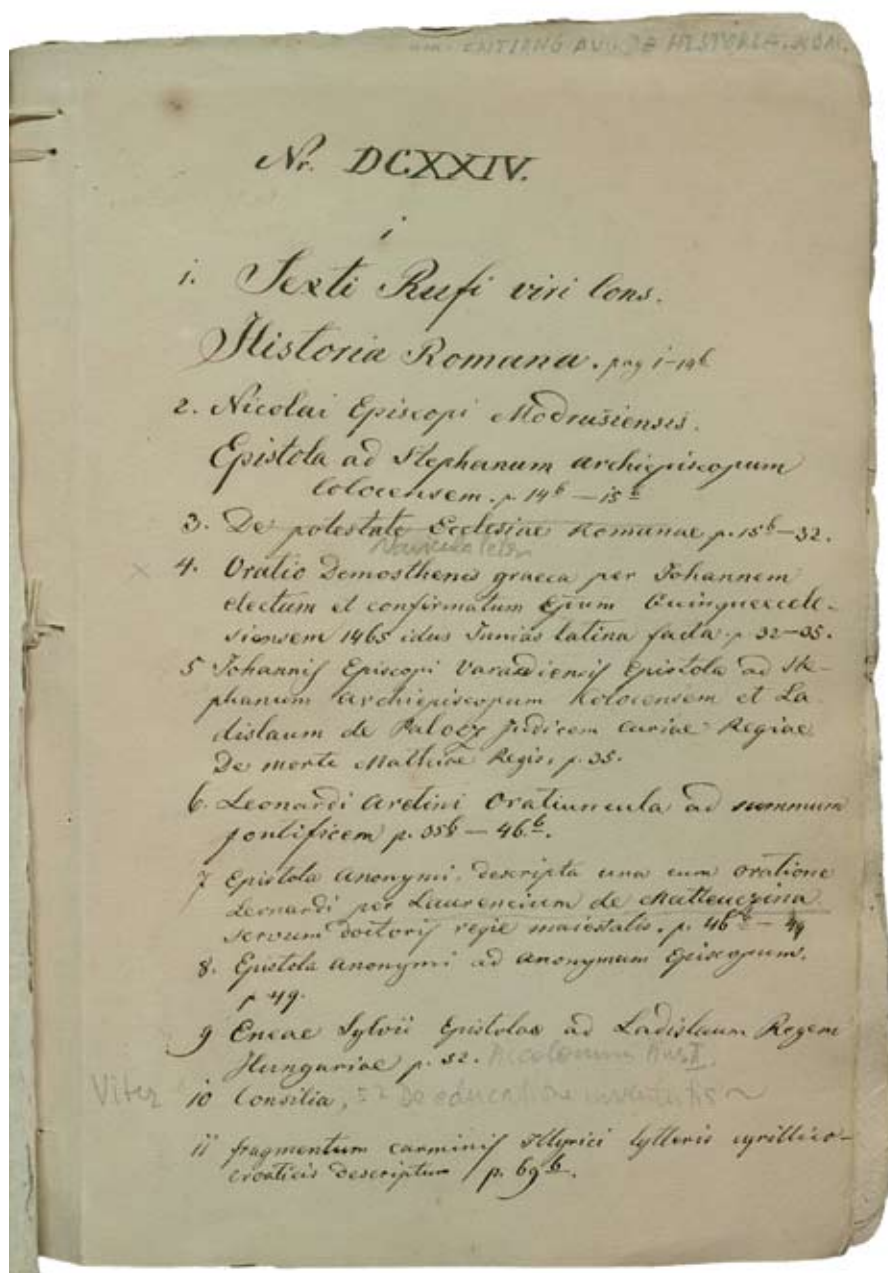 DE HISTORIA. ROM.
Nr. DCXXIV.
i
1. Sexti Rufi viri Cons.
Historia Romana. pag 1-14b
2. Nicolai Episcopi Modrusiensis.
Epistola ad Stephanum Archiepiscopum
Colocensem. p. 14b — 15b
3. De potestate Ecclesiae Romanae p. 15b—32.
4. Oratio Demosthenis graeca per Johannem
electum et confirmatum Epum Quinqueeccle-
siensem 1465 idus Junias latina facta p. 32—35.
5 Johannis Episcopi Varadiensis Epistola ad Ste-
phanum Archiepiscopum Kolocensem et La
dislaum de Palocz Judicem curiae Regiae
De morte Mathiae Regis. p. 35.
6. Leonardi Aretini Oratiuncula ad summum
pontificem p. 35b — 46.b.
7 Epistola Anonymi. descripta una cum oratione
Leonardi per Laurencium de Matteuczina
servum doctoris regie maiestatis. p. 46b — 49
8. Epistola Anonymi ad Anonymum Episcopum.
p 49.
9 Eneae Sylvii Epistolae ad Ladislaum Regem
Hungariae p. 52.
Vitez 10 Consilia, 52 De educatione
11 fragmentum carminis Illyrici lytteris cyrillico-
croaticis descriptum p. 69b.